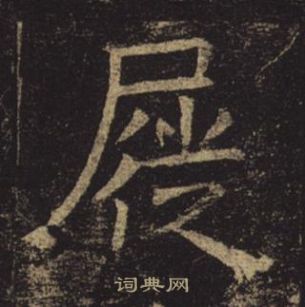 屐
词典网